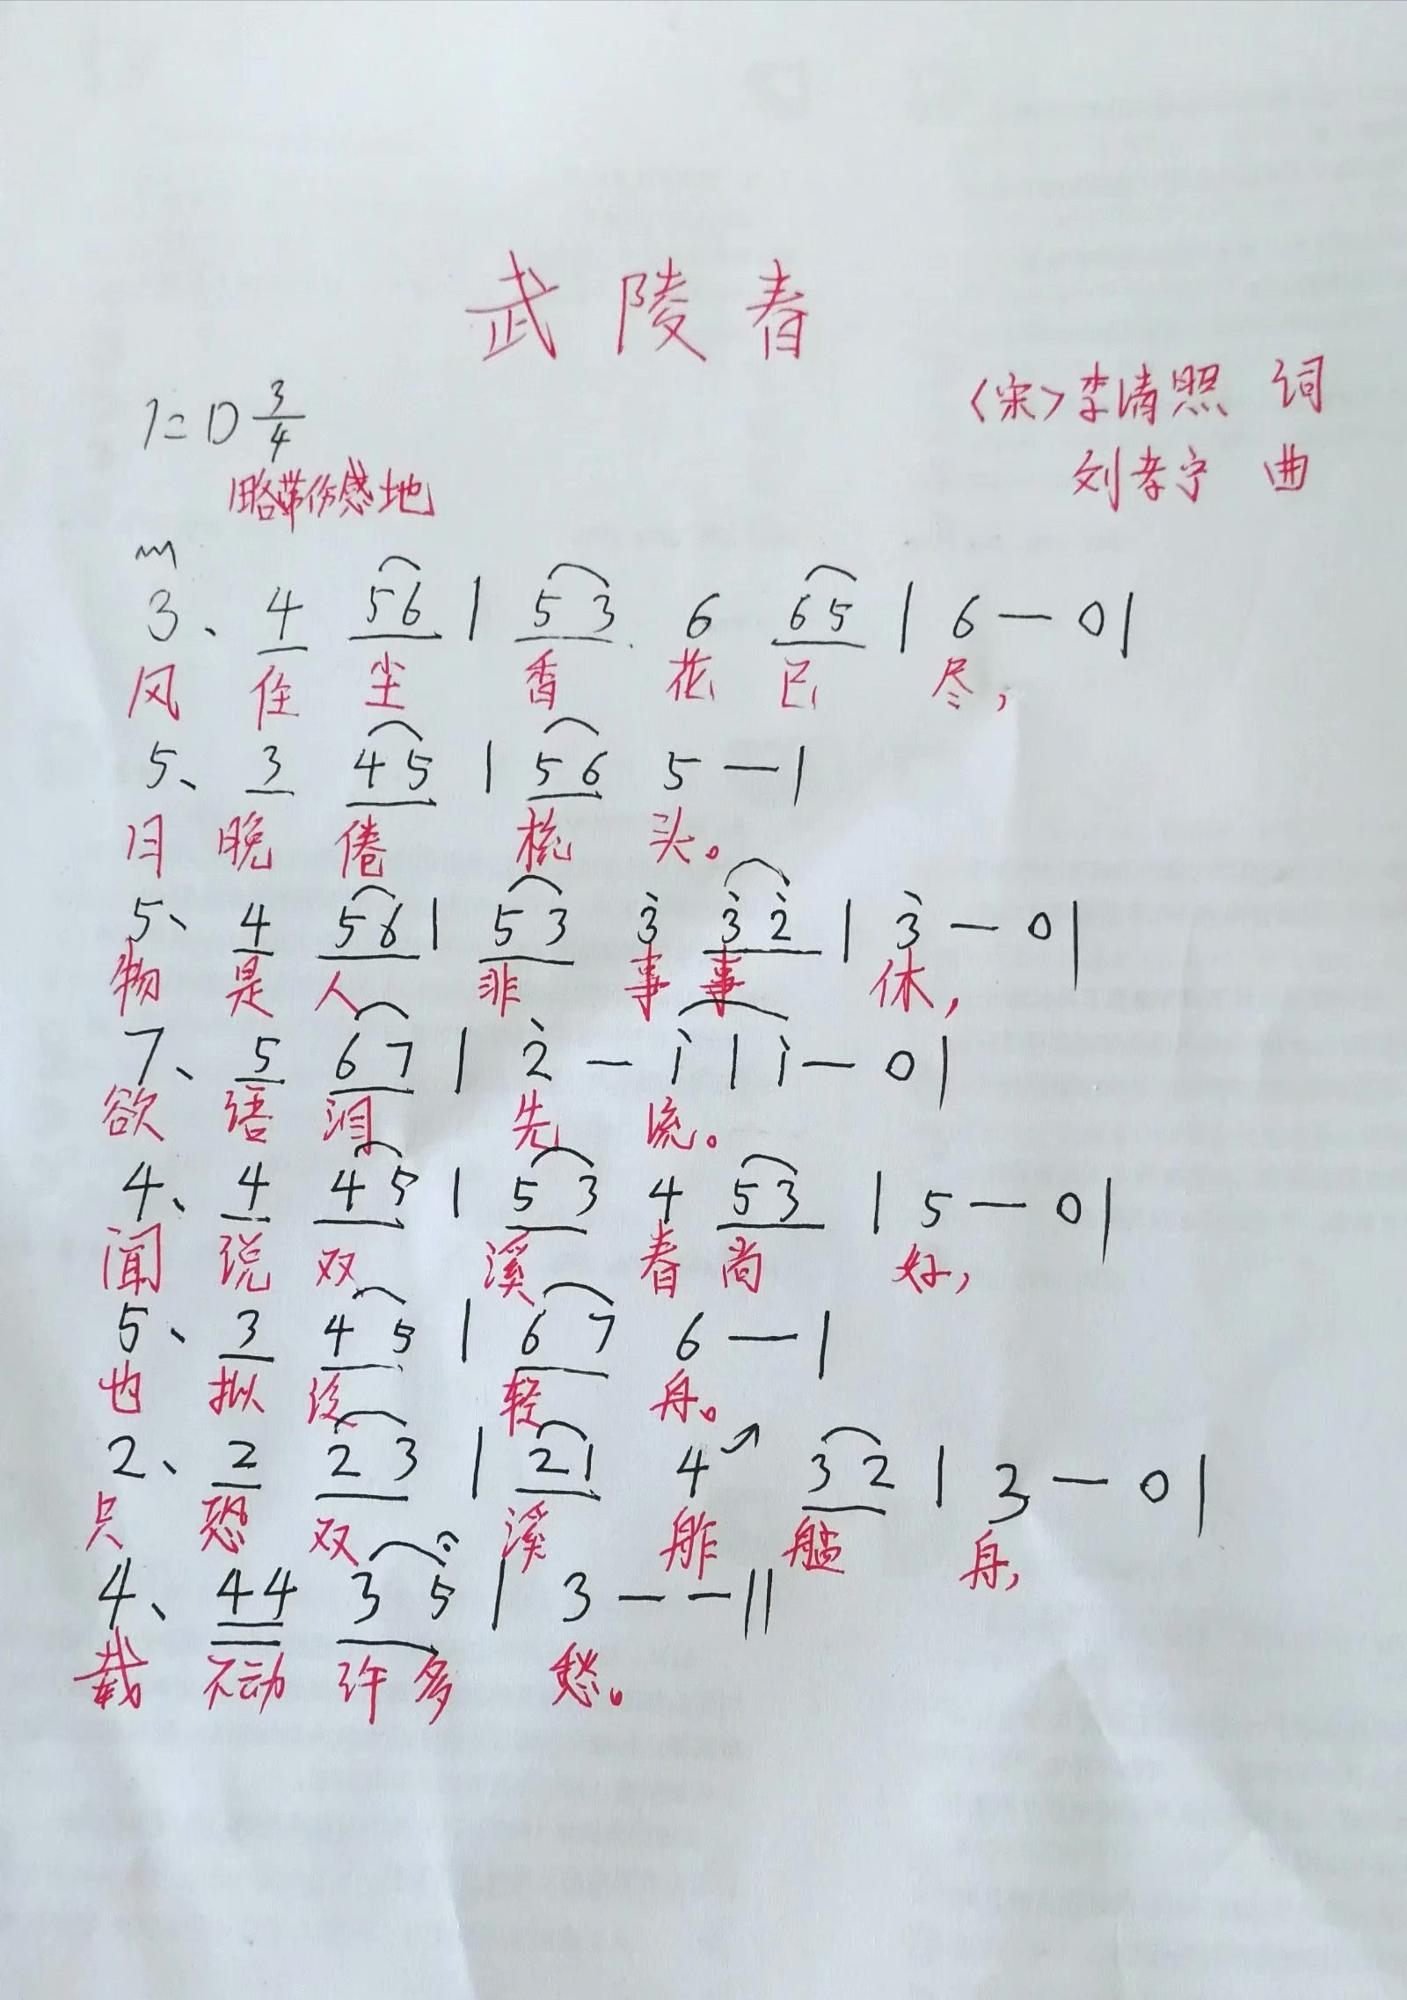 武陵春
1=D 3/4
〈宋〉李清照 词
刘孝宁 曲
略带伤感地
m
3、 4 56 | 53 6 65 | 6 — 0 |
风 住 尘 香 花 已 尽,
5、 3 45 | 56 5 — |
日 晚 倦 梳 头。
5、 4 56 | 53 3̇ 3̇2̇ | 3̇ — 0 |
物 是 人 非 事 事 休,
7、 5 67 | 2̇ — 1̇ | 1̇ — 0 |
欲 语 泪 先 流。
4、 4 45 | 53 4 53 | 5 — 0 |
闻 说 双 溪 春 尚 好,
5、 3 45 | 67 6 — |
也 拟 泛 轻 舟。
2、 2 23 | 21 4↗ 32 | 3 — 0 |
只 恐 双 溪 舴 艋 舟,
4、 44 35 | 3 — — ||
载 不动 许多 愁。